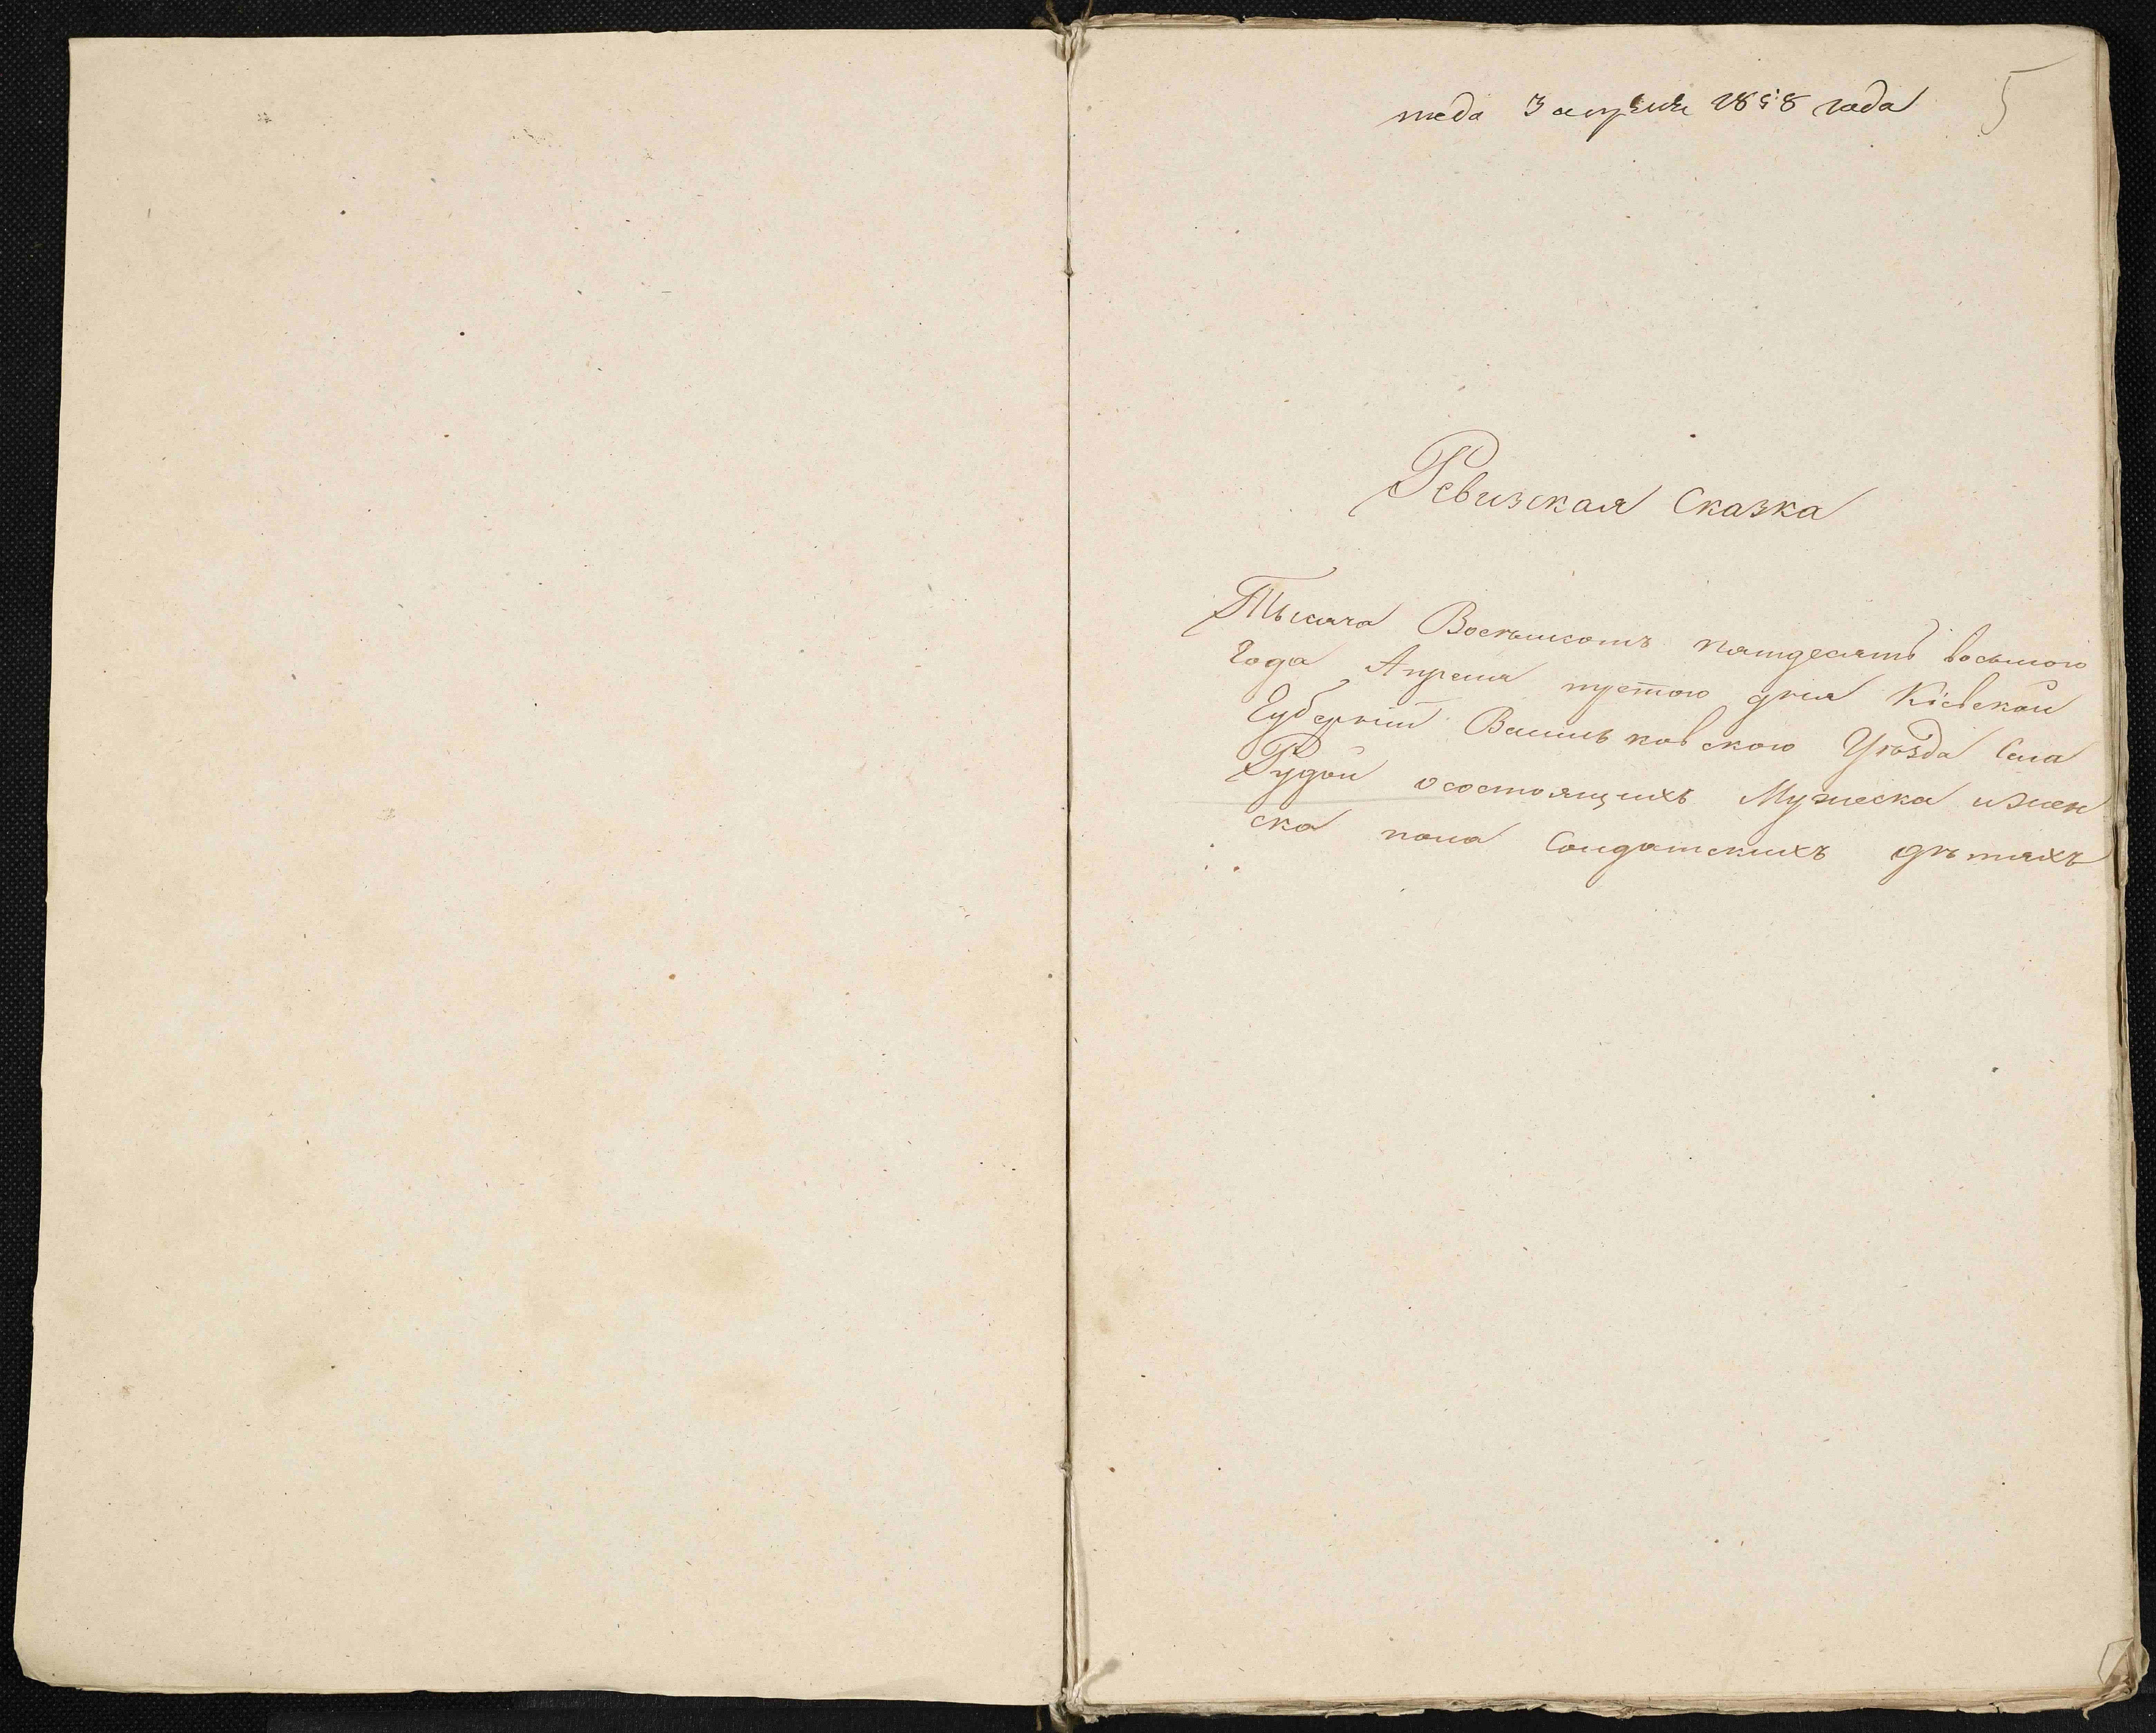 3 апреля 1858 года
5
Ревизская Сказка
Тысяча Восемьсотъ пятдесятъ восьмого
года Апреля третого дня Кіевской
Губерніи Васильковского Уѣзда Села
Рудой о состоящихъ Мужеска и жен
ска пола Солдатскихъ дѣтяхъ